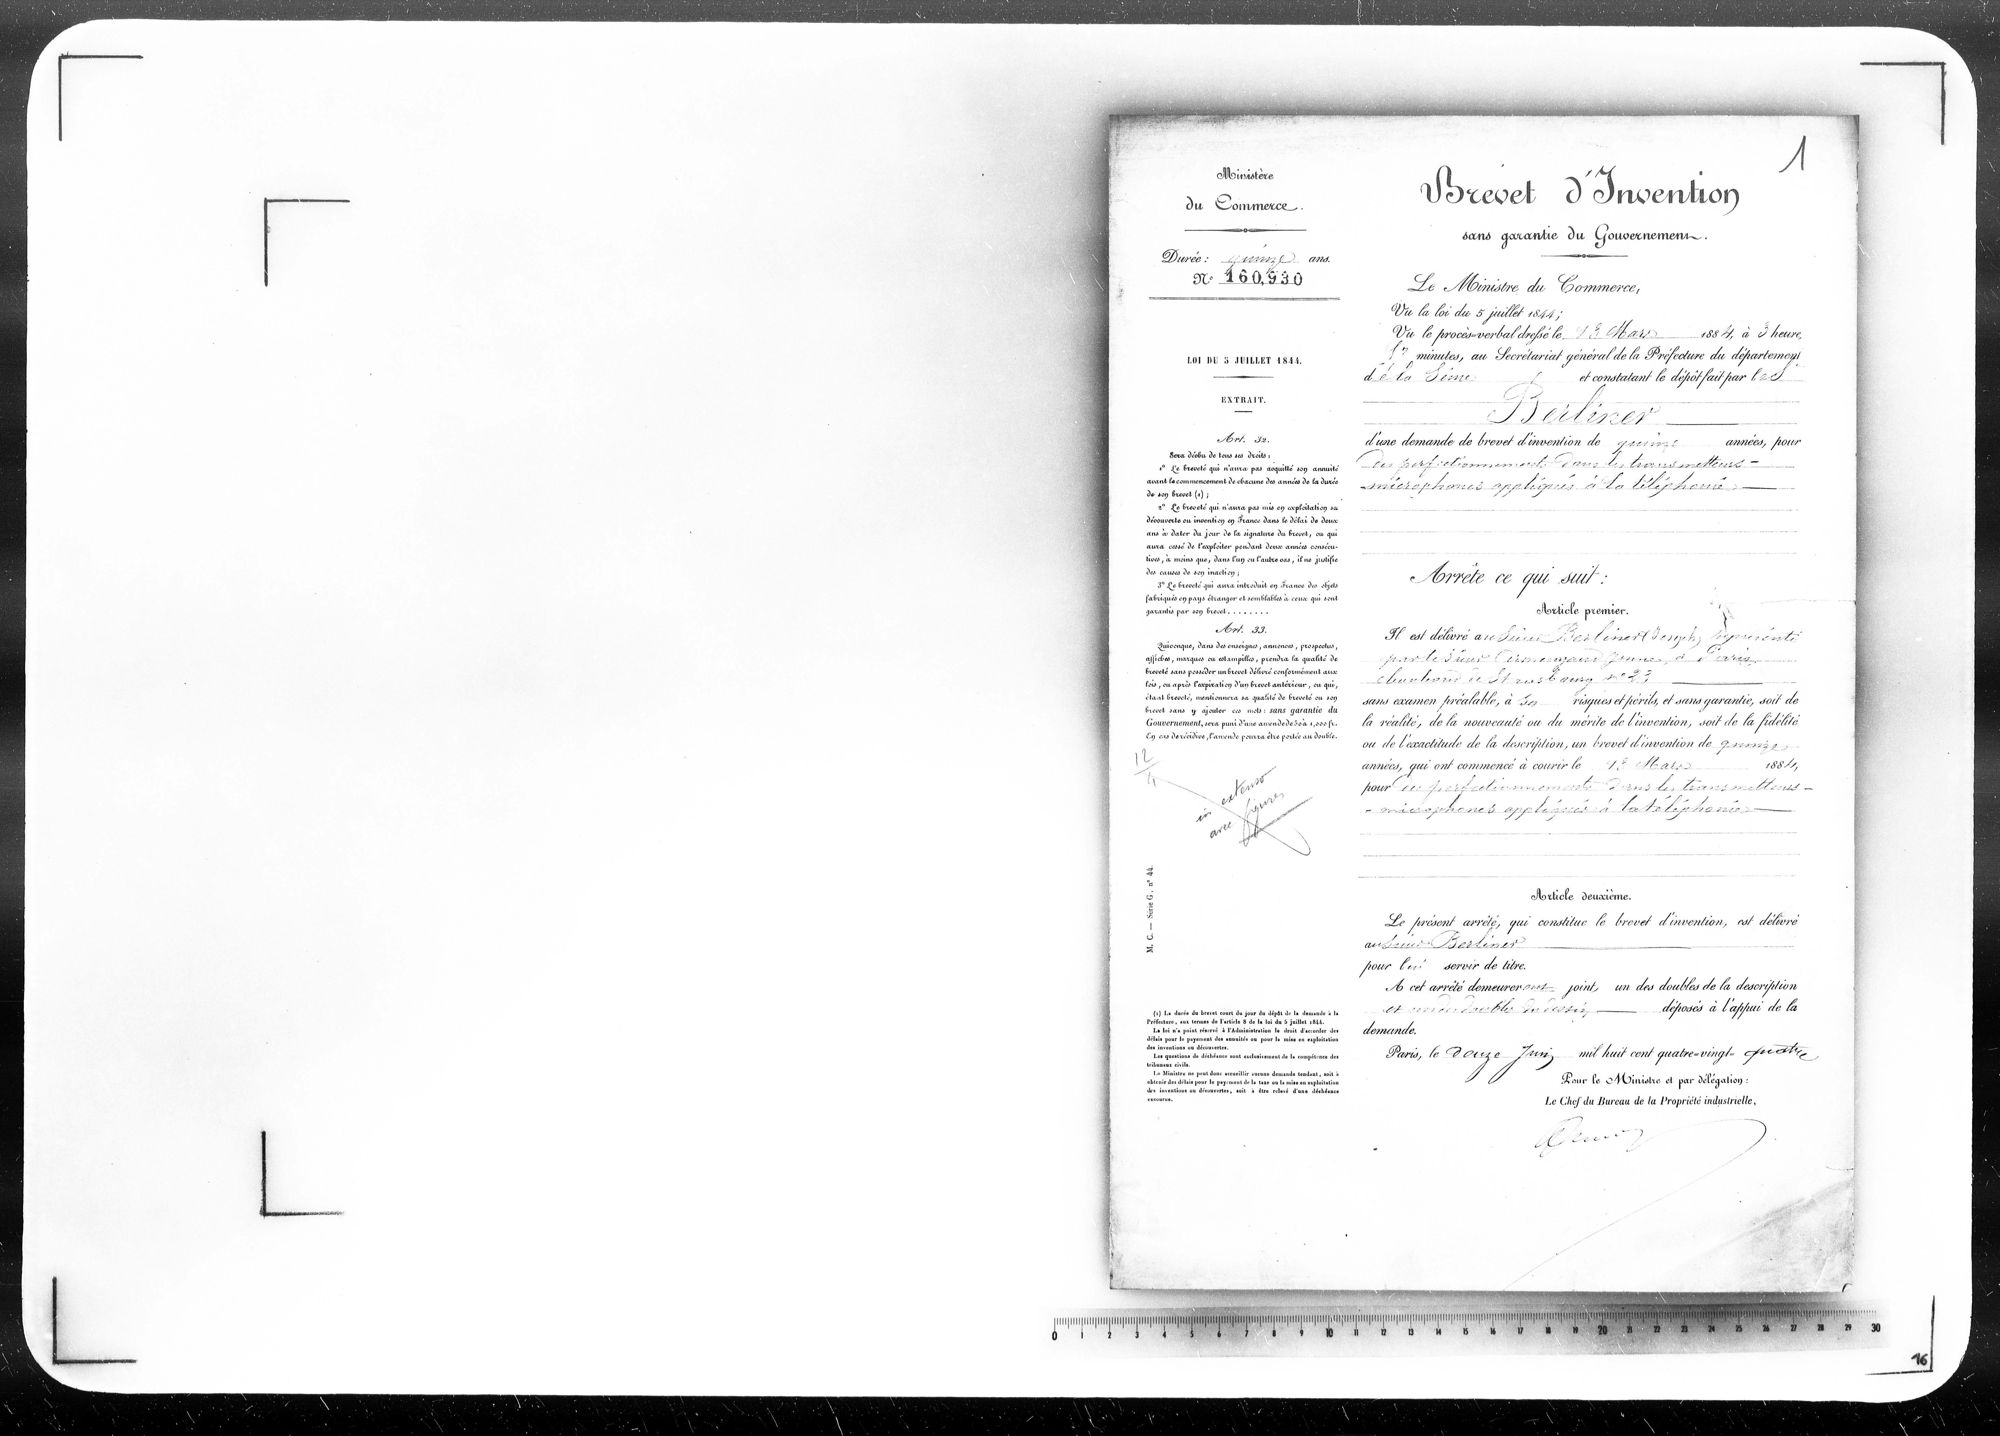 1
Ministère
du Commerce.
Durée : quinze ans.
N° 160,930
LOI DU 5 JUILLET 1844.
EXTRAIT.
Art. 32.
Sera déchu de tous ses droits :
1° Le breveté qui n'aura pas acquitté son annuité
avant le commencement de chacune des années de la durée
de son brevet (1) ;
2° Le breveté qui n'aura pas mis en exploitation sa
découverte ou invention en France dans le délai de deux
ans à dater du jour de la signature du brevet, ou qui
aura cessé de l'exploiter pendant deux années consécu-
tives, à moins que, dans l'un ou l'autre cas, il ne justifie
des causes de son inaction ;
3° Le breveté qui aura introduit en France des objets
fabriqués en pays étranger et semblables à ceux qui sont
garantis par son brevet . . . . . . . .
Art. 33.
Quiconque, dans des enseignes, annonces, prospectus,
affiches, marques ou estampilles, prendra la qualité de
breveté sans posséder un brevet délivré conformément aux
lois, ou après l'expiration d'un brevet antérieur, ou qui,
étant breveté, mentionnera sa qualité de breveté ou son
brevet sans y ajouter ces mots : sans garantie du
Gouvernement, sera puni d'une amende de 50 à 1,000 fr.
En cas de récidive, l'amende pourra être portée au double.
12
4
in extenso
avec figures
M. C. — Série G, n° 44.
(1) La durée du brevet court du jour du dépôt de la demande à la
Préfecture, aux termes de l'article 8 de la loi du 5 juillet 1844.
La loi n'a point réservé à l'Administration le droit d'accorder des
délais pour le payement des annuités ou pour la mise en exploitation
des inventions ou découvertes.
Les questions de déchéance sont exclusivement de la compétence des
tribunaux civils.
Le Ministre ne peut donc accueillir aucune demande tendant, soit à
obtenir des délais pour le payement de la taxe ou la mise en exploitation
des inventions ou découvertes, soit à être relevé d'une déchéance
encourue.
Brevet d'Invention
sans garantie du Gouvernement.
Le Ministre du Commerce,
Vu la loi du 5 juillet 1844 ;
Vu le procès-verbal dressé le 13 Mars 1884, à 3 heure
minutes, au Secrétariat général de la Préfecture du département
de la Seine et constatant le dépôt fait par le S.
Berliner
d'une demande de brevet d'invention de quinze années, pour
des perfectionnements dans les transmetteurs-
microphones appliqués à la téléphonie
Arrête ce qui suit :
Article premier.
Il est délivré au Sieur Berliner (Joseph) représenté
par le Sieur Armengaud jeune, à Paris
Boulevard de Strasbourg n° 23
sans examen préalable, à ses risques et périls, et sans garantie, soit de
la réalité, de la nouveauté ou du mérite de l'invention, soit de la fidélité
ou de l'exactitude de la description, un brevet d'invention de quinze
années, qui ont commencé à courir le 13 Mars 1884,
pour des perfectionnements dans les transmetteurs-
microphones appliqués à la téléphonie
Article deuxième.
Le présent arrêté, qui constitue le brevet d'invention, est délivré
au Sieur Berliner
pour lui servir de titre.
A cet arrêté demeureront joint, un des doubles de la description
et un des doubles du dessin déposés à l'appui de la
demande.
Paris, le douze Juin mil huit cent quatre-vingt-quatre
Pour le Ministre et par délégation :
Le Chef du Bureau de la Propriété industrielle,
0 1 2 3 4 5 6 7 8 9 10 11 12 13 14 15 16 17 18 19 20 21 22 23 24 25 26 27 28 29 30
16